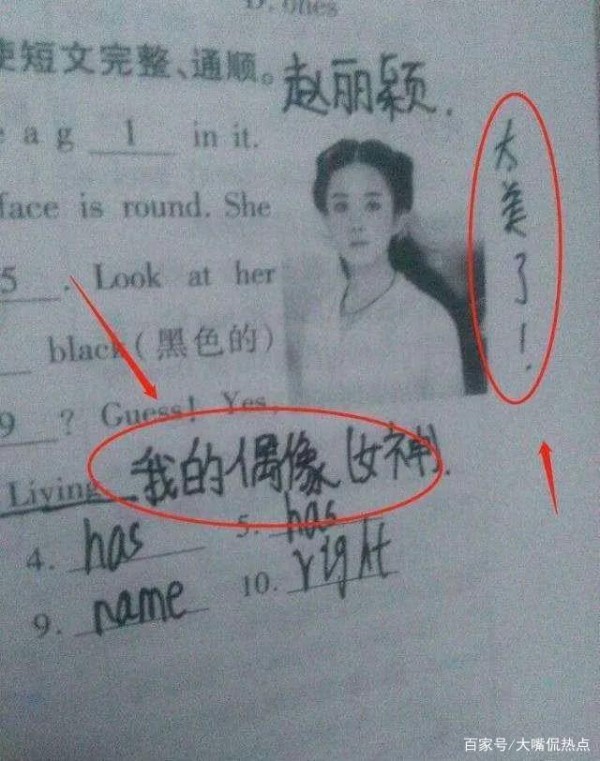 D. ones
使短文完整、通顺。
赵丽颖.
e a g 1 in it.
face is round. She
5 . Look at her
black(黑色的)
9 ? Guess! Yes,
Living
太美了!
我的偶像(女神).
4. has 5. has
9. name 10. right
百家号/大嘴侃热点